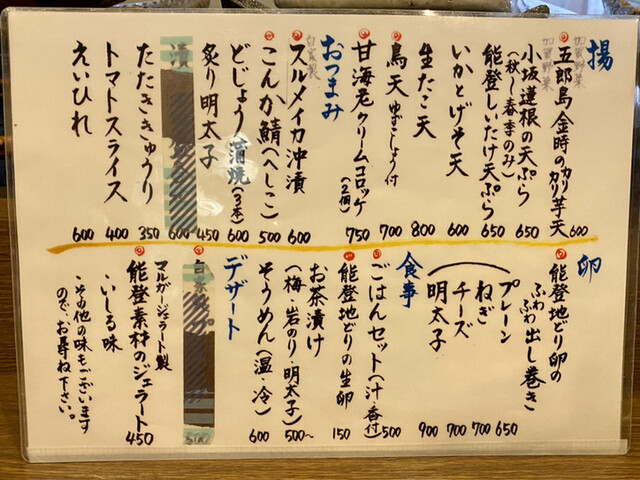 揚
加賀野菜
五郎島金時のカリカリ芋天 600
加賀野菜
小坂蓮根の天ぷら 650
(秋〜春季のみ)
能登しいたけ天ぷら 650
いかとげそ天 600
生たこ天 800
鳥天 ゆずこしょう付 700
甘海老クリームコロッケ (2個) 750
おつまみ
自家製
スルメイカ沖漬 600
こんか鯖(へしこ) 500
どじょう蒲焼(3本) 600
炙り明太子 450
漬 600
たたききゅうり 350
トマトスライス 400
えいひれ 600
卵
能登地どり卵の
ふわふわ出し巻き
プレーン 650
ねぎ 700
チーズ 700
明太子 900
食事
ごはんセット(汁・香付) 500
能登地どりの生卵 150
お茶漬け 500〜
(梅・岩のり・明太子)
そうめん(温・冷) 600
デザート
マルガージェラート製
能登素材のジェラート 450
・いしる味
・その他の味もございます
ので、お尋ね下さい。